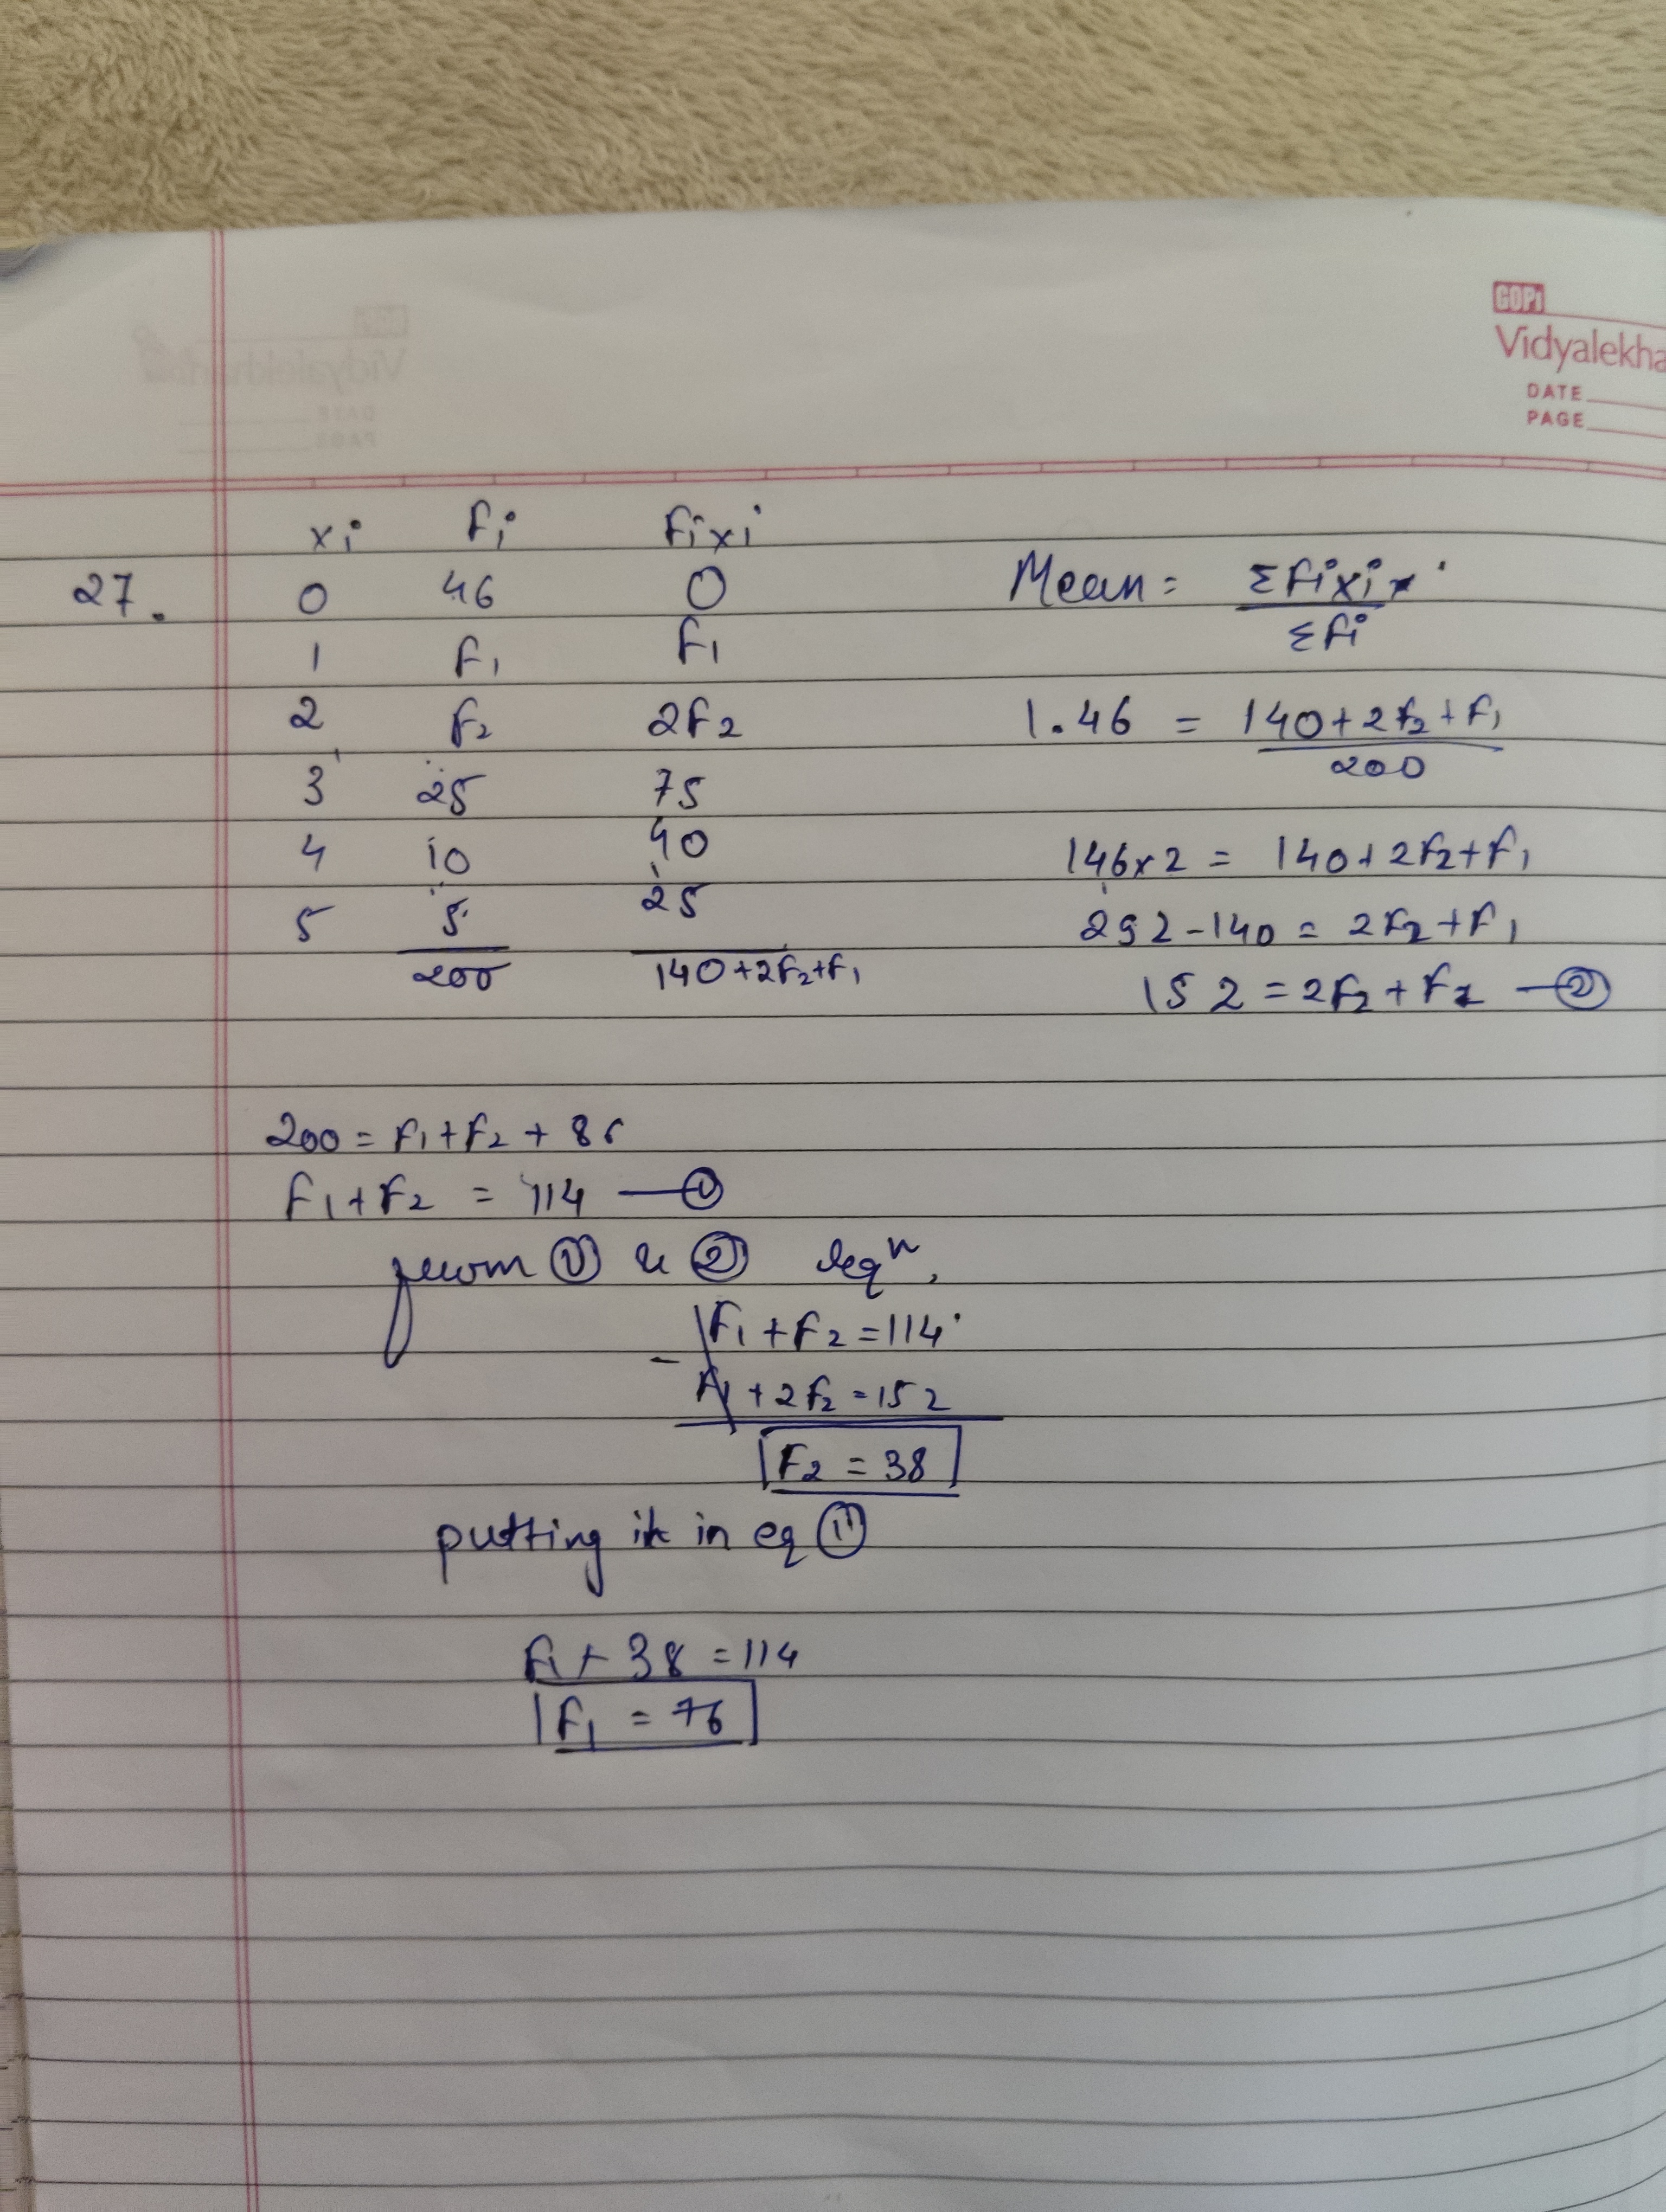 GOPI
Vidyalekha
DATE
PAGE
xi fi fixi
27. 0 46 0
1 f1 f1
2 f2 2f2
3 25 75
4 10 40
5 5 25
200 140+2f2+f1
Mean = Σfixi
Σfi
1.46 = 140+2f2+f1
200
146x2 = 140+2f2+f1
292-140 = 2f2+f1
152 = 2f2+f1 — ②
200 = f1+f2+86
f1+f2 = 114 — ①
from ① & ② eqn,
f1+f2=114
- f1+2f2=152
F2 = 38
putting it in eq ①
f1+38=114
f1 = 76